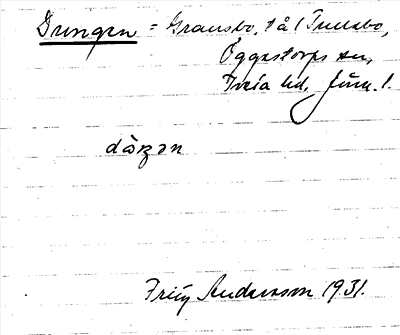 Dungen = Gransbo, t å l Tunnabo,
Öggestorps sn,
Tveta hd, Jönk. l.
dàŋən
Fritz Andersson 1931.